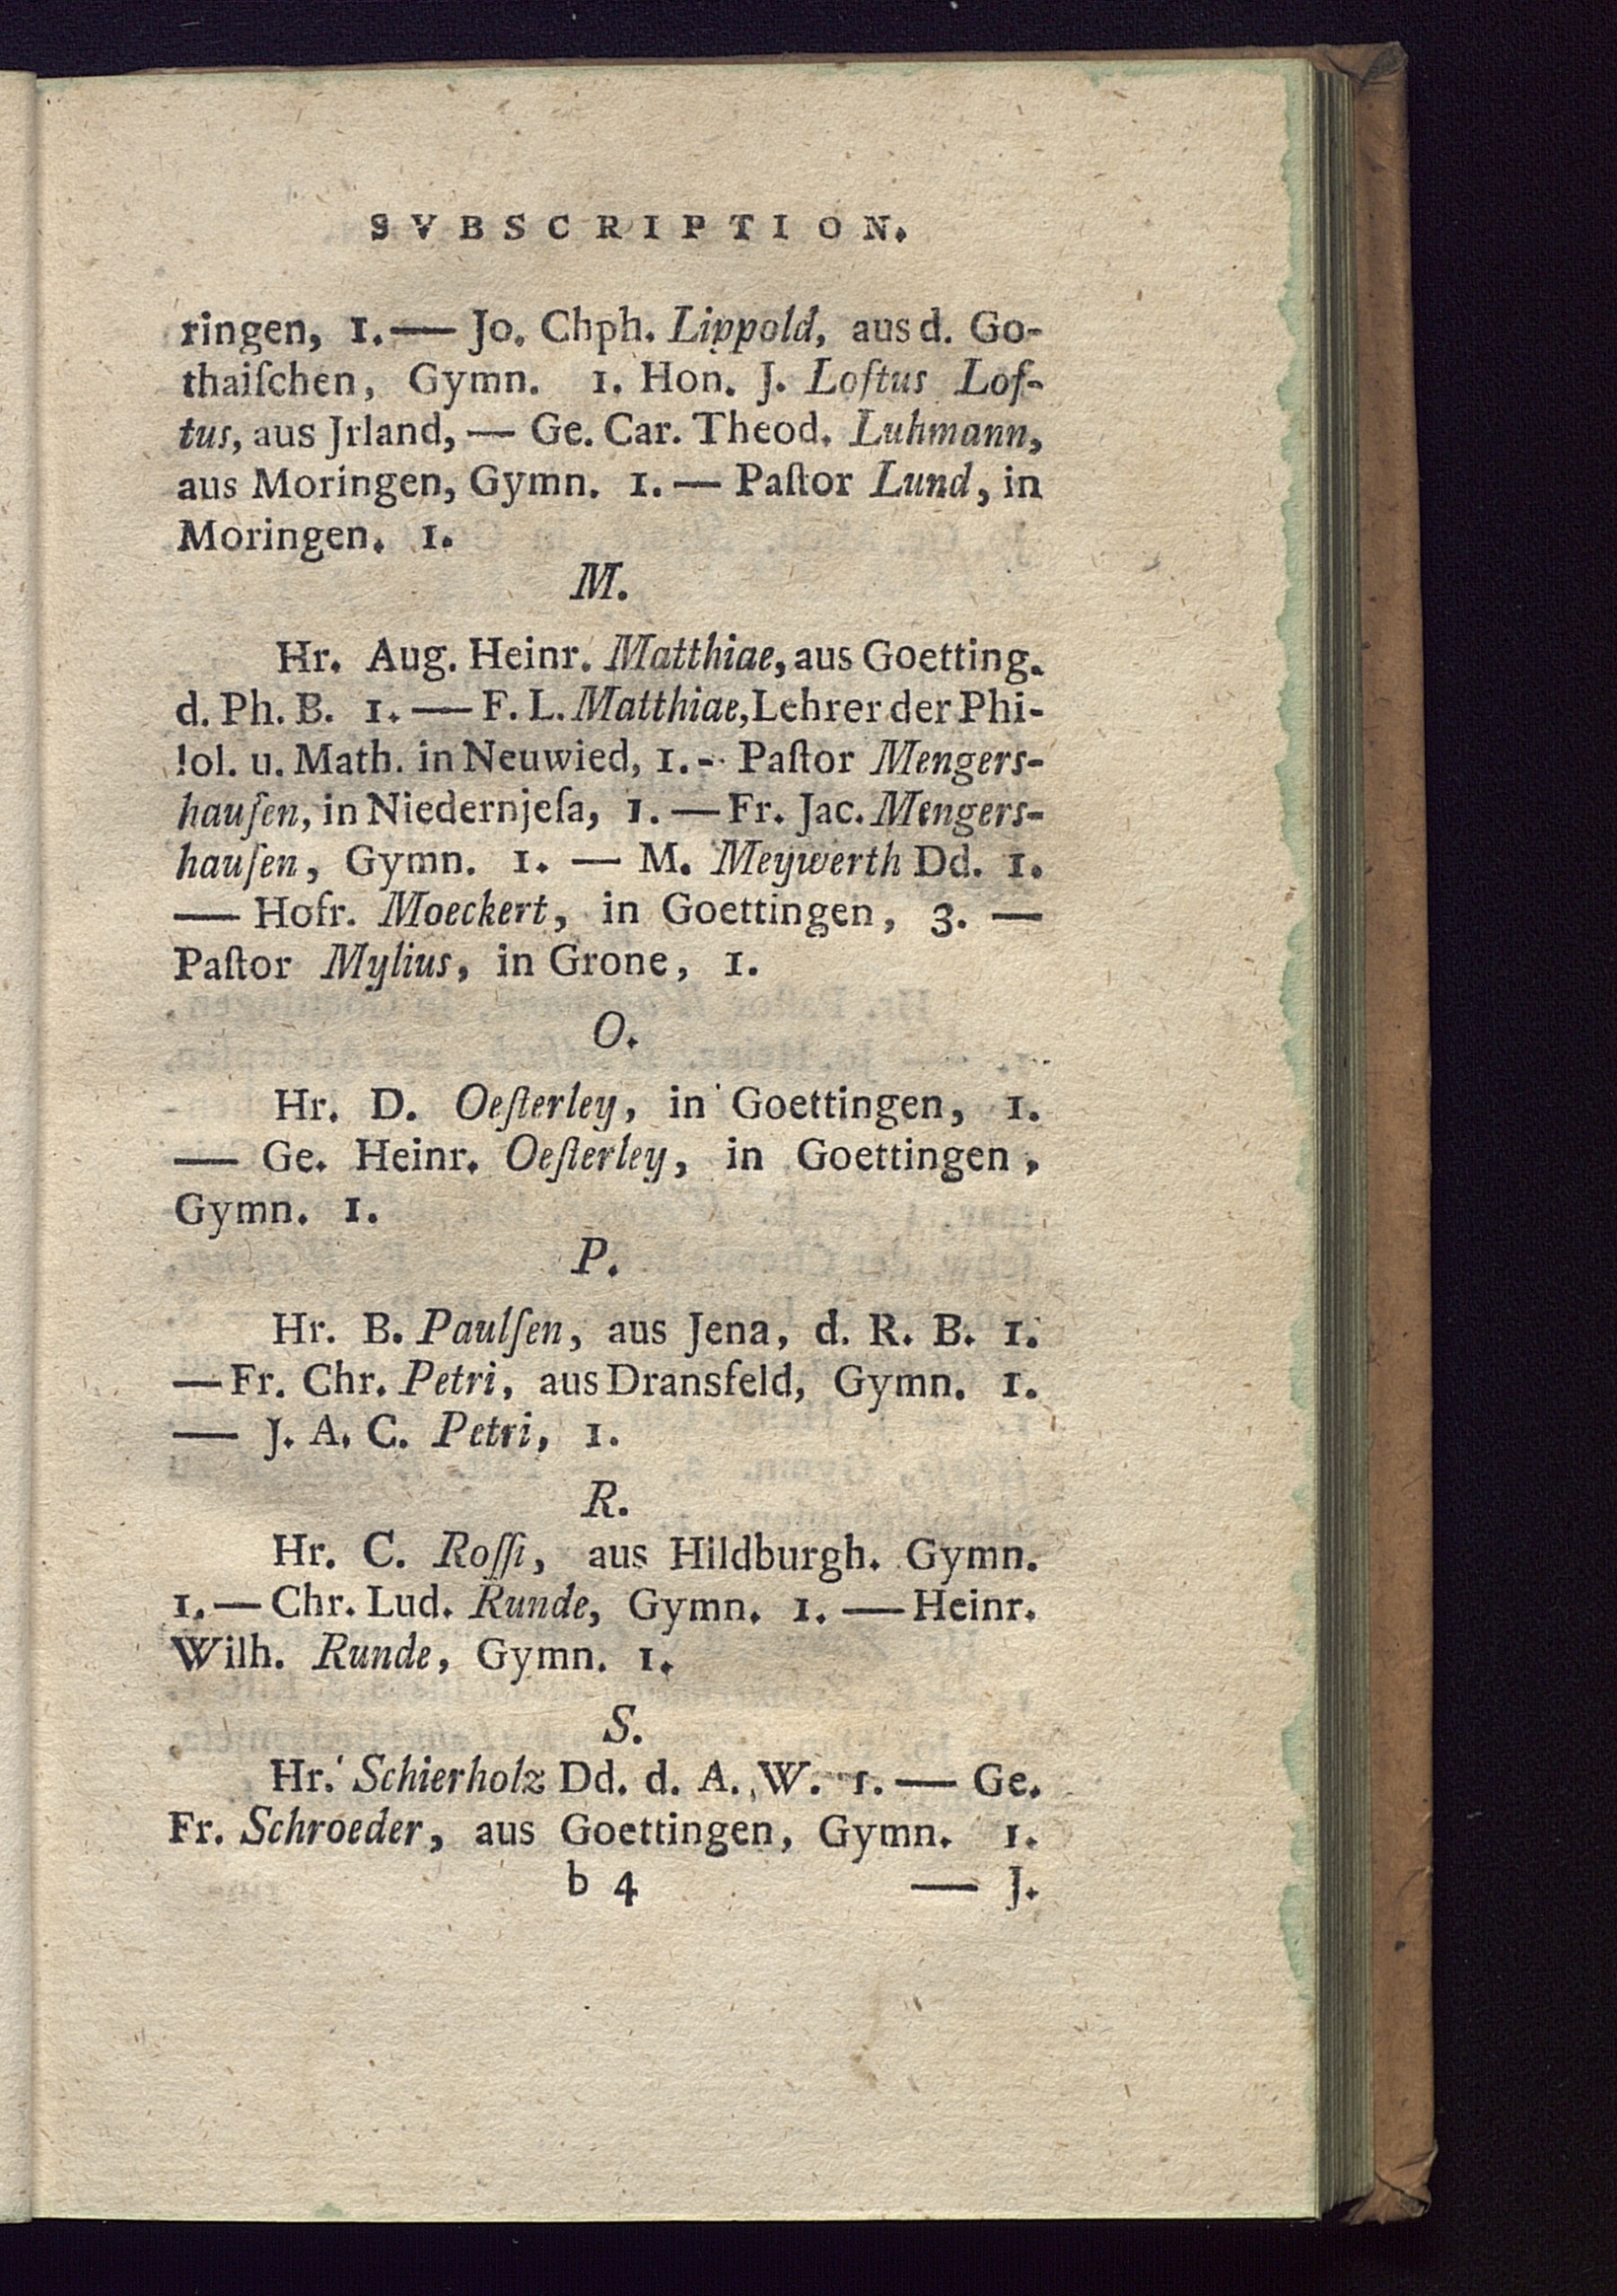 SVBSCRIPTION.
ringen, 1. — Jo. Chph. Lippold, aus d. Go-
thaiſchen, Gymn. 1. Hon. J. Loftus Lof-
tus, aus Jrland, — Ge. Car. Theod. Luhmann,
aus Moringen, Gymn. 1. — Paſtor Lund, in
Moringen. 1.
M.
Hr. Aug. Heinr. Matthiae, aus Goetting.
d. Ph. B. 1. — F. L. Matthiae, Lehrer der Phi-
lol. u. Math. in Neuwied, 1. - Paſtor Mengers-
hauſen, in Niedernjeſa, 1. — Fr. Jac. Mengers-
hauſen, Gymn. 1. — M. Meywerth Dd. 1.
— Hofr. Moeckert, in Goettingen, 3. —
Paſtor Mylius, in Grone, 1.
O.
Hr. D. Oeſterley, in Goettingen, 1.
— Ge. Heinr. Oeſterley, in Goettingen,
Gymn. 1.
P.
Hr. B. Paulſen, aus Jena, d. R. B. 1.
— Fr. Chr. Petri, aus Dransfeld, Gymn. 1.
— J. A. C. Petri, 1.
R.
Hr. C. Roſſi, aus Hildburgh. Gymn.
1. — Chr. Lud. Runde, Gymn. 1. — Heinr.
Wilh. Runde, Gymn. 1.
S.
Hr. Schierholz Dd. d. A. W. 1. — Ge.
Fr. Schroeder, aus Goettingen, Gymn. 1.
b 4 — J.